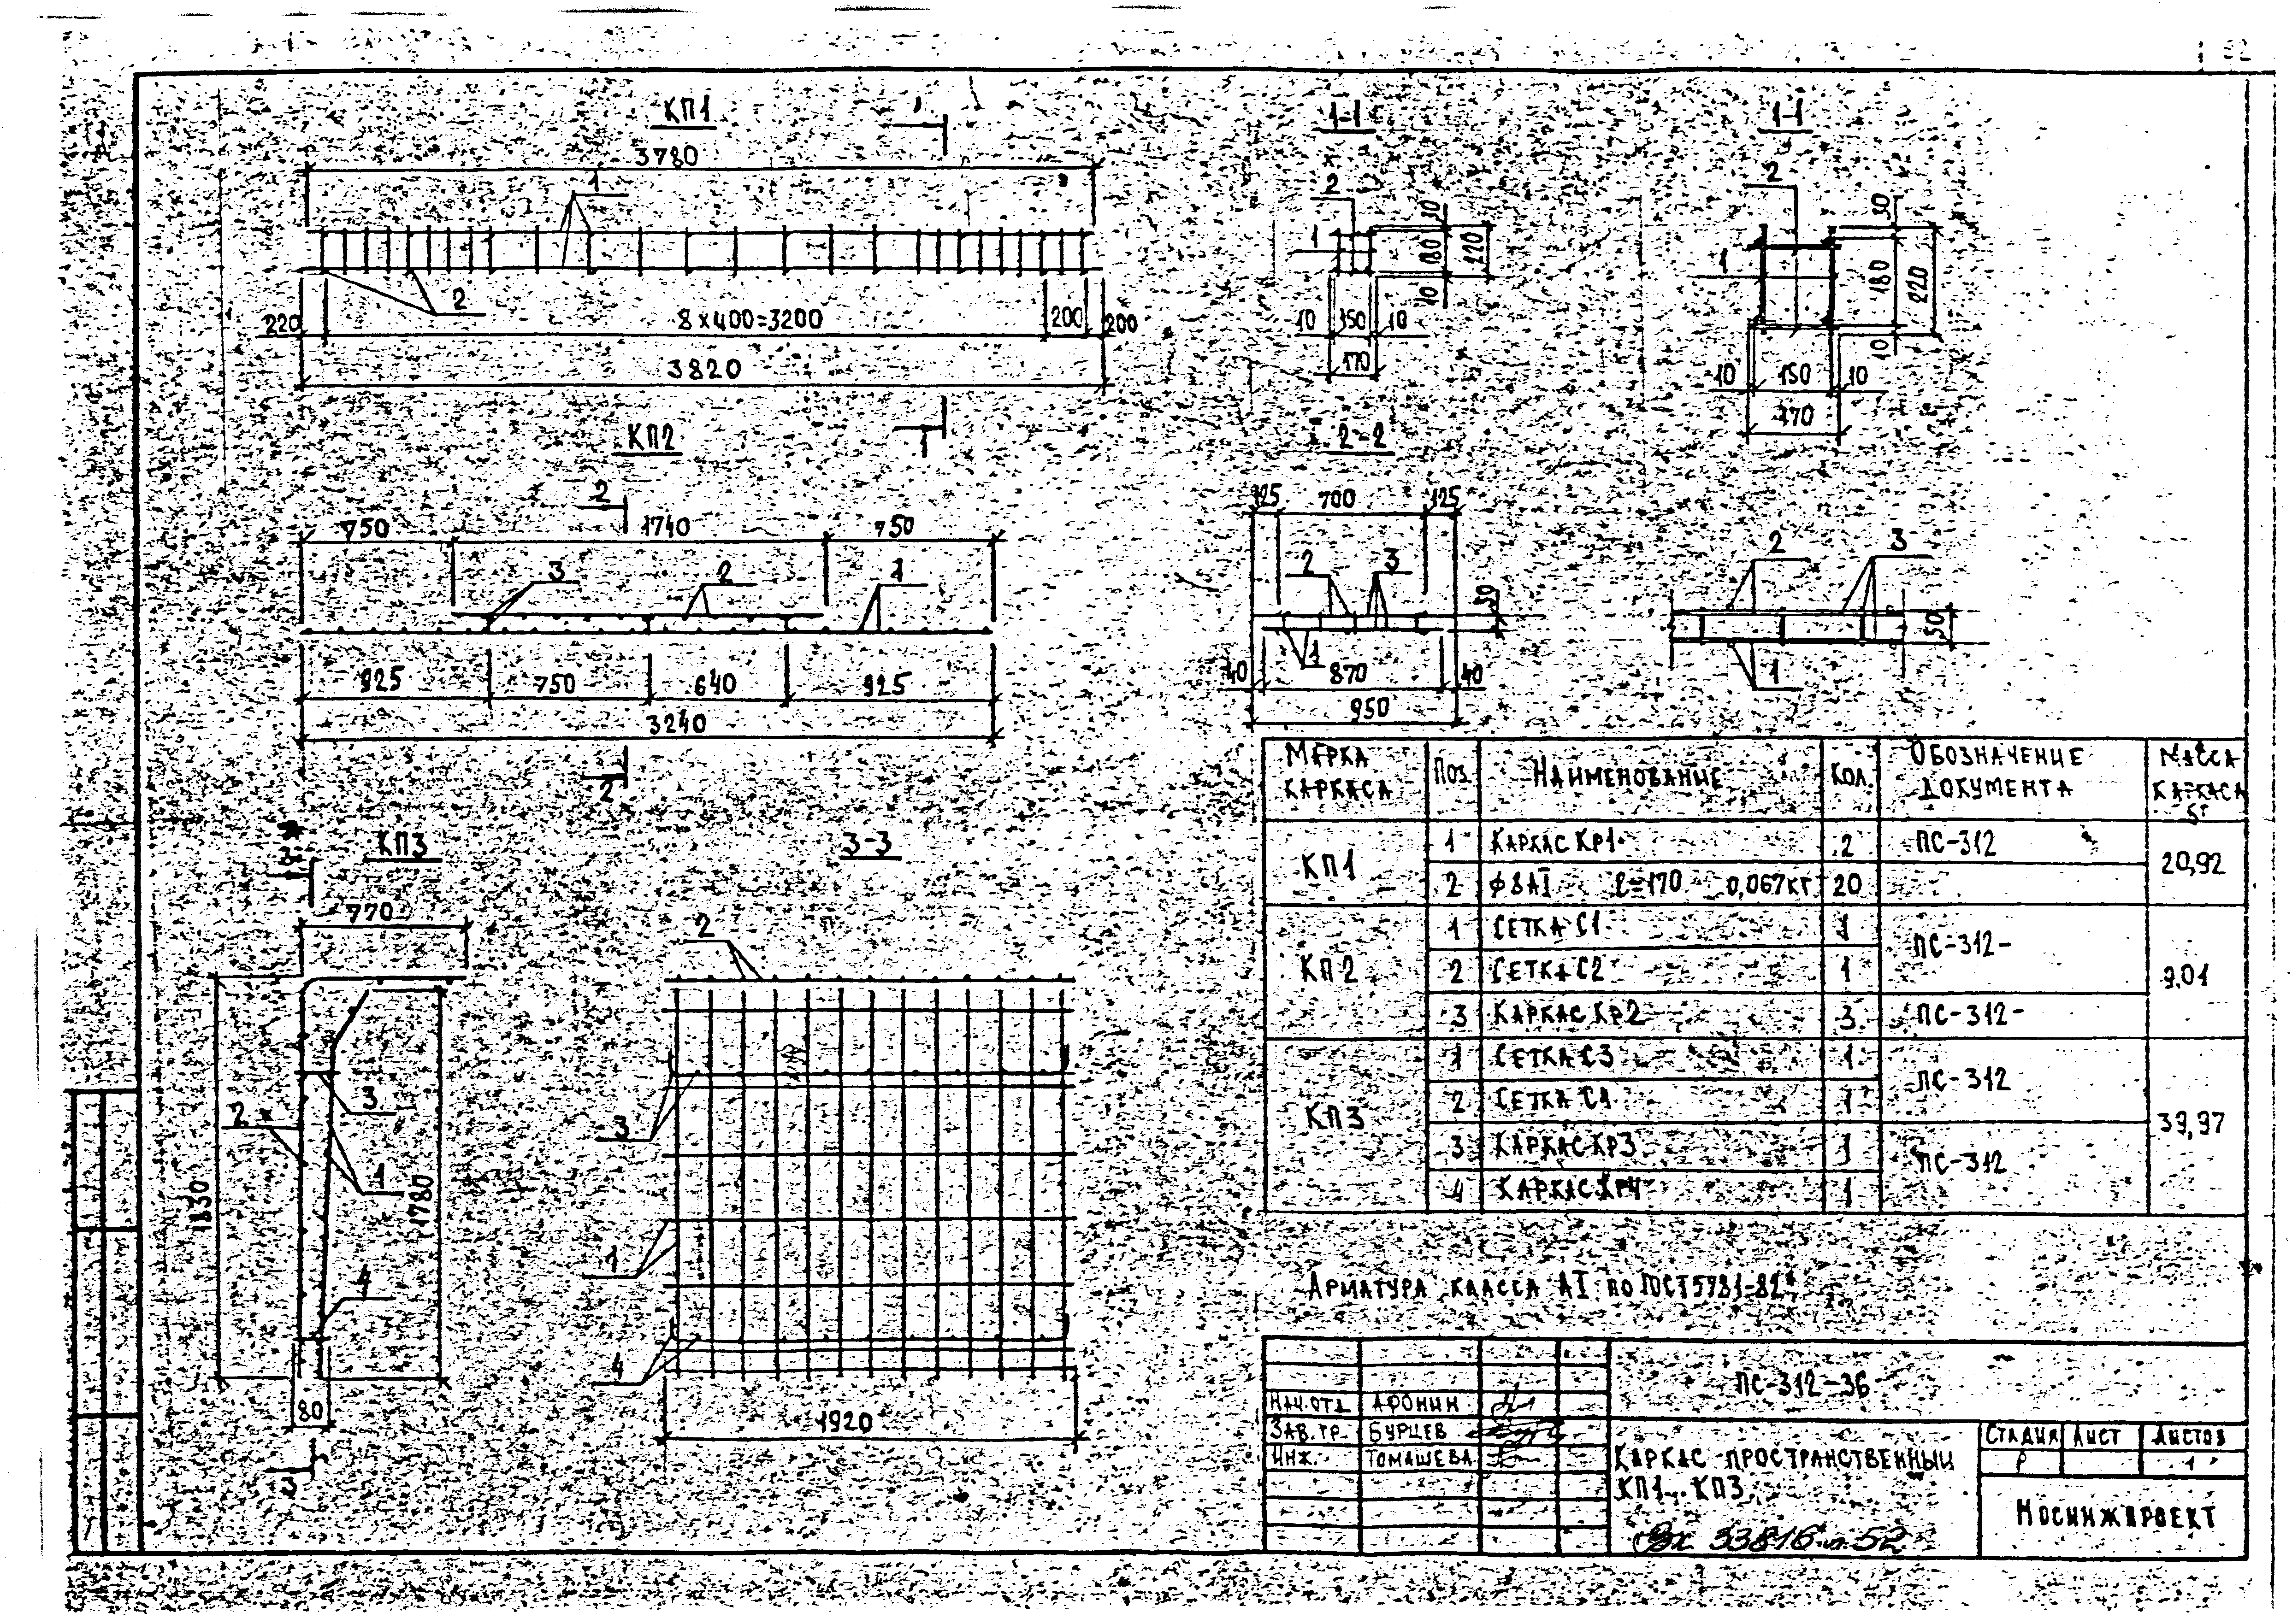 КП1
3780
1
2
220
8×400=3200
200
200
3820
1
1-1
2
1
30
180
220
10
10
150
10
170
1-1
2
1
30
180
220
10
10
150
10
170
КП2
2
750
1740
750
3
2
1
925
750
640
925
3240
2
2-2
125
700
125
2
3
50
1
40
870
40
950
2
3
50
1
КП3
3
770
3
2
1
1830
1780
4
80
3
3-3
2
3
1
4
1920
Марка каркаса
Поз
Наименование
Кол.
Обозначение документа
Масса каркаса кг
КП1
1 Каркас Кр1 2 ПС-312
20,92
2 φ8АI ℓ=170 0,067кг 20
КП2
1 Сетка С1 1
ПС-312-
2 Сетка С2 1
9,01
3 Каркас Кр2 3 ПС-312-
КП3
1 Сетка С3 1
ПС-312
2 Сетка С4 1
39,97
3 Каркас Кр3 1
ПС-312
4 Каркас Кр4 1
Арматура класса АI по ГОСТ 5781-82*
ПС-312-36
Нач.отд Афонин
Зав.гр. Бурцев
Инж. Томашева
Каркас пространственный
КП1...КП3
Стадия Лист Листов
Р 1
Мосинжпроект
33816 52